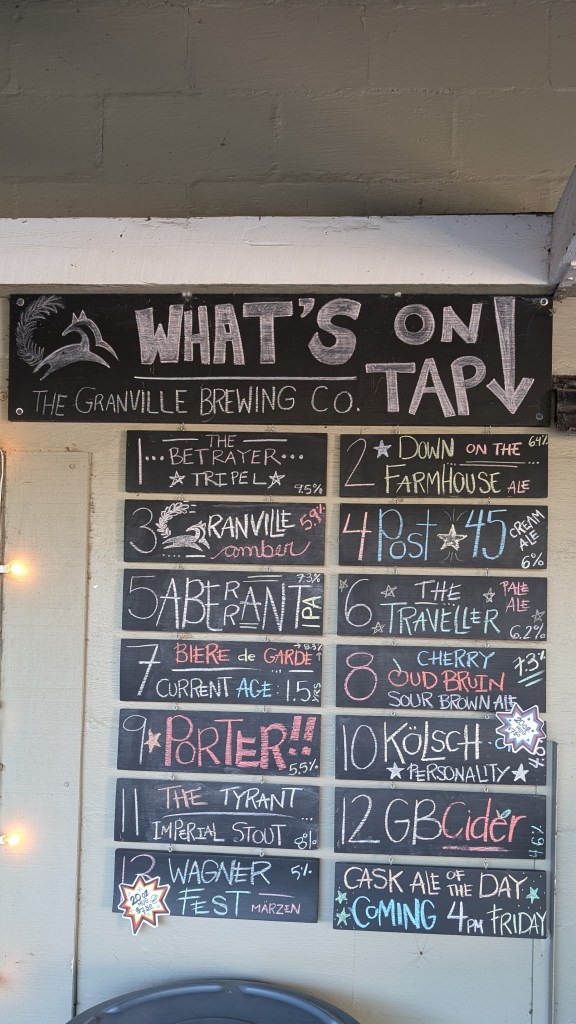 WHAT'S ON TAP
THE GRANVILLE BREWING CO.
1 THE
BETRAYER
TRIPEL
9.5%
2 DOWN ON THE 6.4%
FARMHOUSE ALE
3 GRANVILLE 5.9%
amber
4 Post 45 CREAM ALE 6%
5 ABERRANT IPA 7.3%
6 THE TRAVELLER
PALE ALE
6.2%
7 BIERE de GARDE
CURRENT AGE: 1.5 YRS
8 CHERRY 7.3%
OUD BRUIN
SOUR BROWN ALE
9 PORTER!!
5.5%
10 KÖLSCH
PERSONALITY
11 THE TYRANT
IMPERIAL STOUT 8%
12 GB Cider 4.6%
WAGNER 5%
FEST MARZEN
20 OZ
CASK ALE OF THE DAY
COMING 4PM FRIDAY